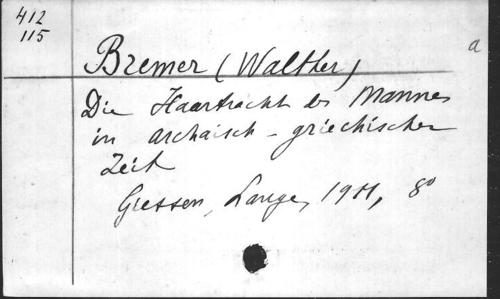 412
115
a
Bremer (Walther)
Die Haartracht des Mannes
in archaisch-griechischer
Zeit
Giessen, Lange, 1911, 8º